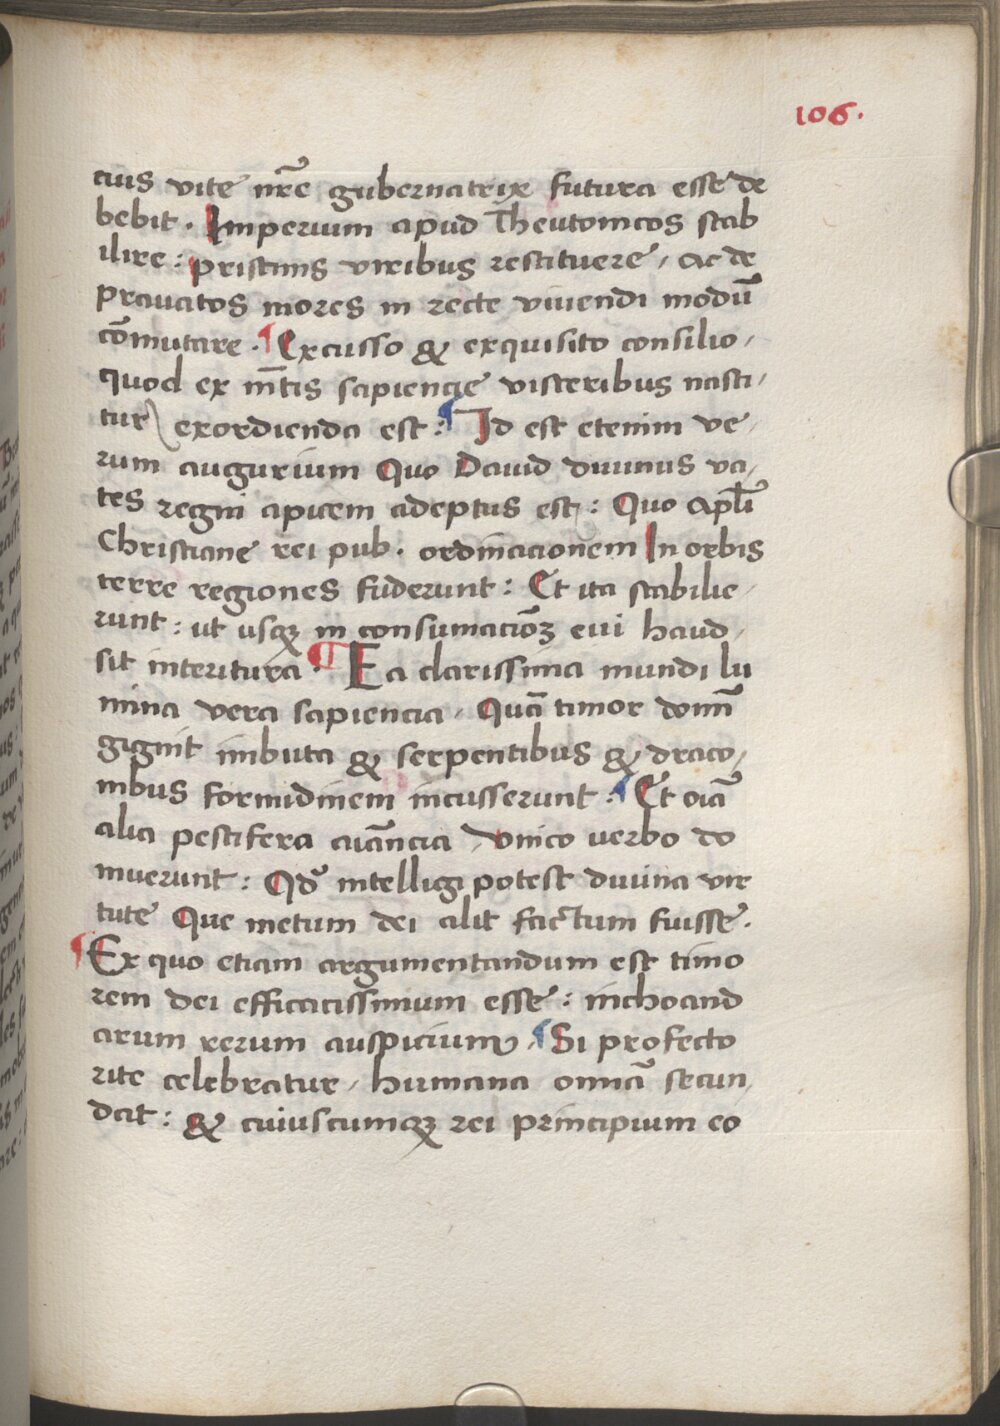 106.
cius vite nr̄e gubernatrix futura esse de
bebit. Imperium apud Theutonicos stab
ilire: pristinis viribus restituere, ac de
pravatos mores in recte vivendi modū
cōmutare. ¶ Excusso & exquisito consilio,
quod ex mētis sapiencie visceribus nasci,
tur exordienda est: ¶ Id est etenim ve,
rum augurium Quo David divinus va,
tes regni apicem adeptus est: Quo Apl̄i
Christiane rei pub. ordinacionem In orbis
terre regiones fuderunt: Et ita stabilie,
runt: ut usqꝫ in consumacioꝫ evi haud,
sit interitura. ¶ Ea clarissima mundi lu
mina vera sapiencia, Quā timor domī
gignit imbuta & serpentibus & draco,
nibus formidinem incusserunt: ¶ Et oīa
alia pestifera aīancia, Unico verbo do
muerunt: Qd̄ intelligi potest divina vir
tute Que metum dei alit factum fuisse.
¶ Ex quo etiam argumentandum est timo
rem dei efficacissimum esse: inchoand
arum rerum auspicium, ¶ Si profecto
rite celebratur, humana omnīa secun,
dat: & cuiuscumqꝫ rei principium eo